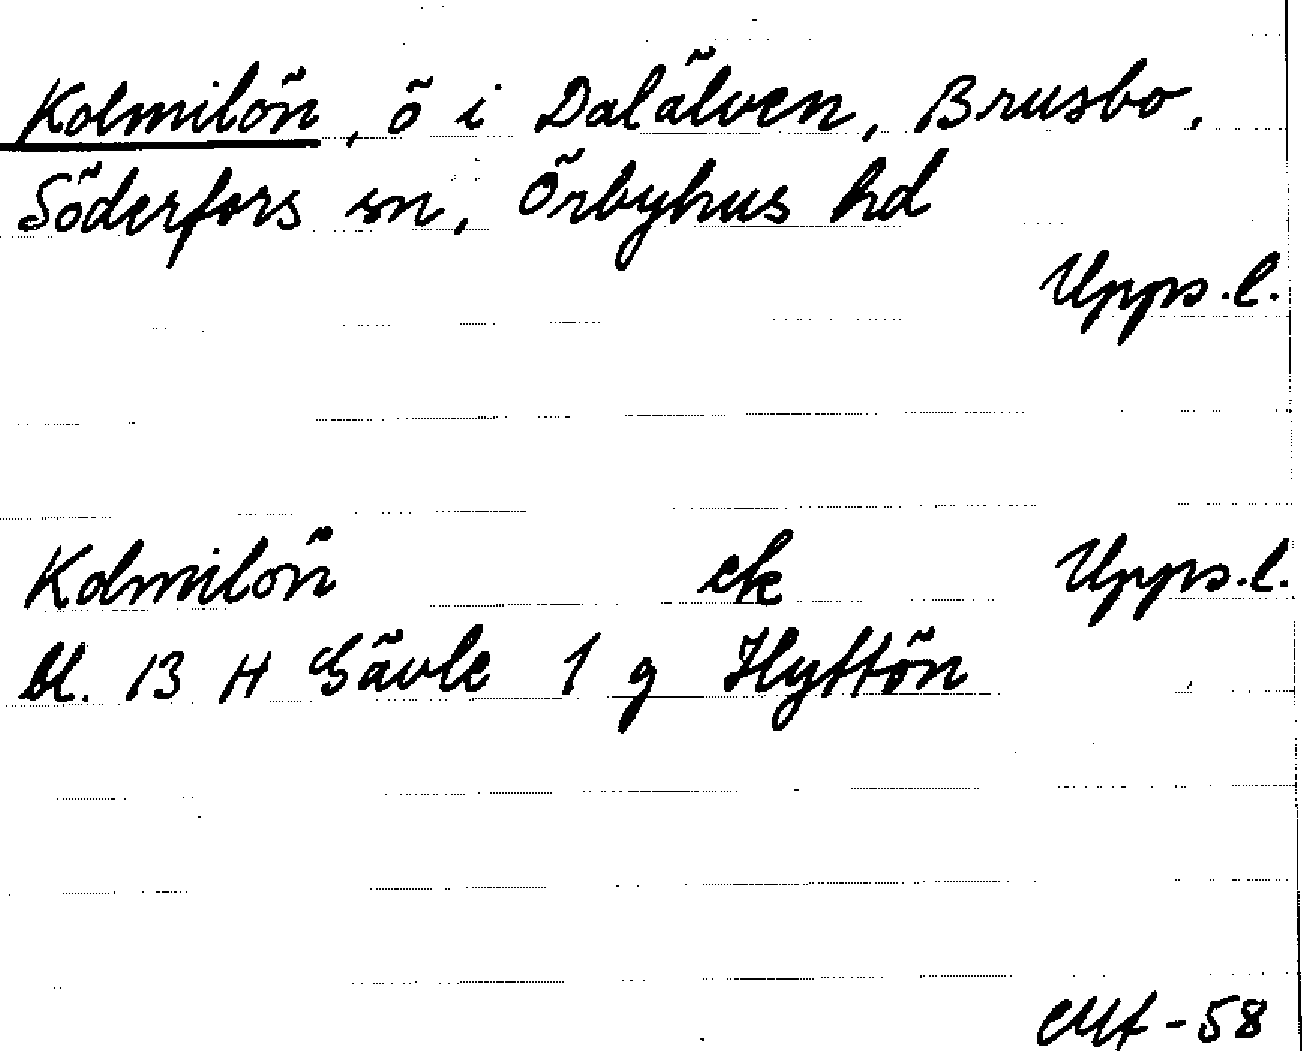 Kolmilön, ö i Dalälven, Brusbo,
Söderfors sn, Örbyhus hd
Upps.l.
Kolmilön ek Upps.l.
bl. 13 H Gävle 1 g Hyttön
-58